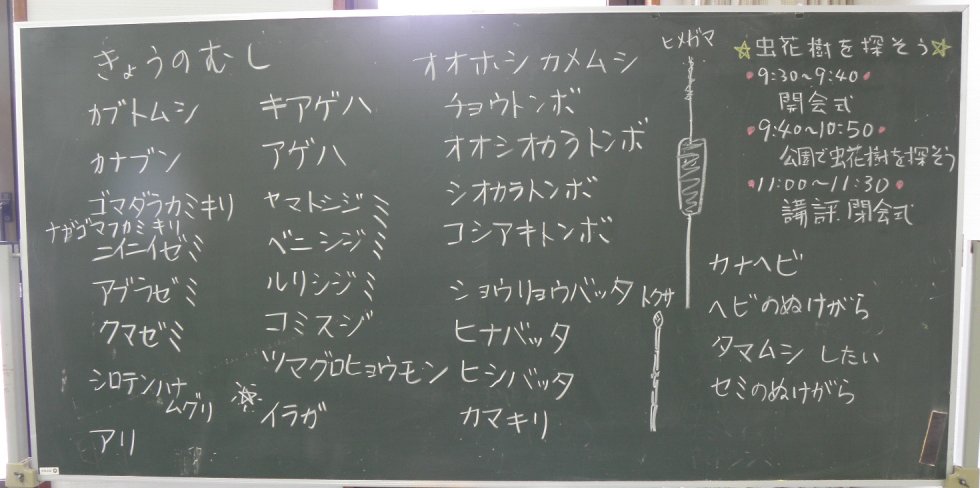 きょうのむし
カブトムシ
カナブン
ゴマダラカミキリ
ナガゴマフカミキリ
ニイニイゼミ
アブラゼミ
クマゼミ
シロテンハナ
ムグリ
アリ
キアゲハ
アゲハ
ヤマトシジミ
ベニシジミ
ルリシジミ
コミスジ
ツマグロヒョウモン
イラガ
オオホシカメムシ
チョウトンボ
オオシオカラトンボ
シオカラトンボ
コシアキトンボ
ショウリョウバッタ
ヒナバッタ
ヒシバッタ
カマキリ
ヒメガマ
トクサ
☆虫花樹を探そう☆
・9:30~9:40・
開会式
・9:40~10:50・
公園で虫花樹を探そう
・11:00~11:30・
講評 閉会式
カナヘビ
ヘビのぬけがら
タマムシ したい
セミのぬけがら